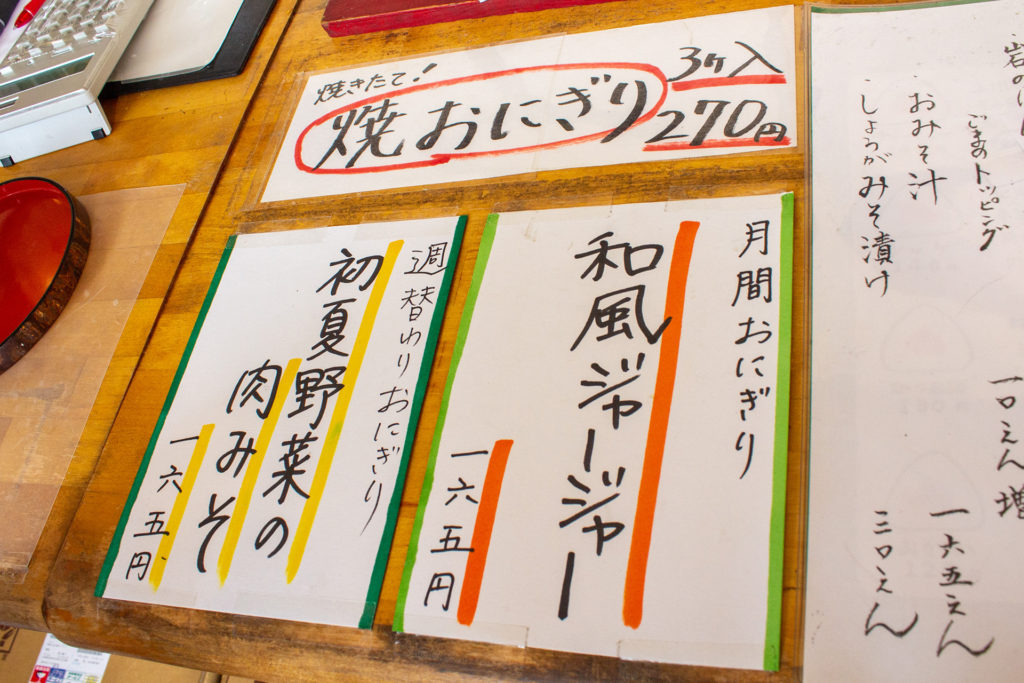 焼きたて!
焼おにぎり
3ヶ入
270円
月間おにぎり
和風ジャージャー
一六五円
週替わりおにぎり
初夏野菜の
肉みそ
一六五円
ごまのトッピング
一〇えん増
おみそ汁
一六五えん
しょうがみそ漬け
三〇えん